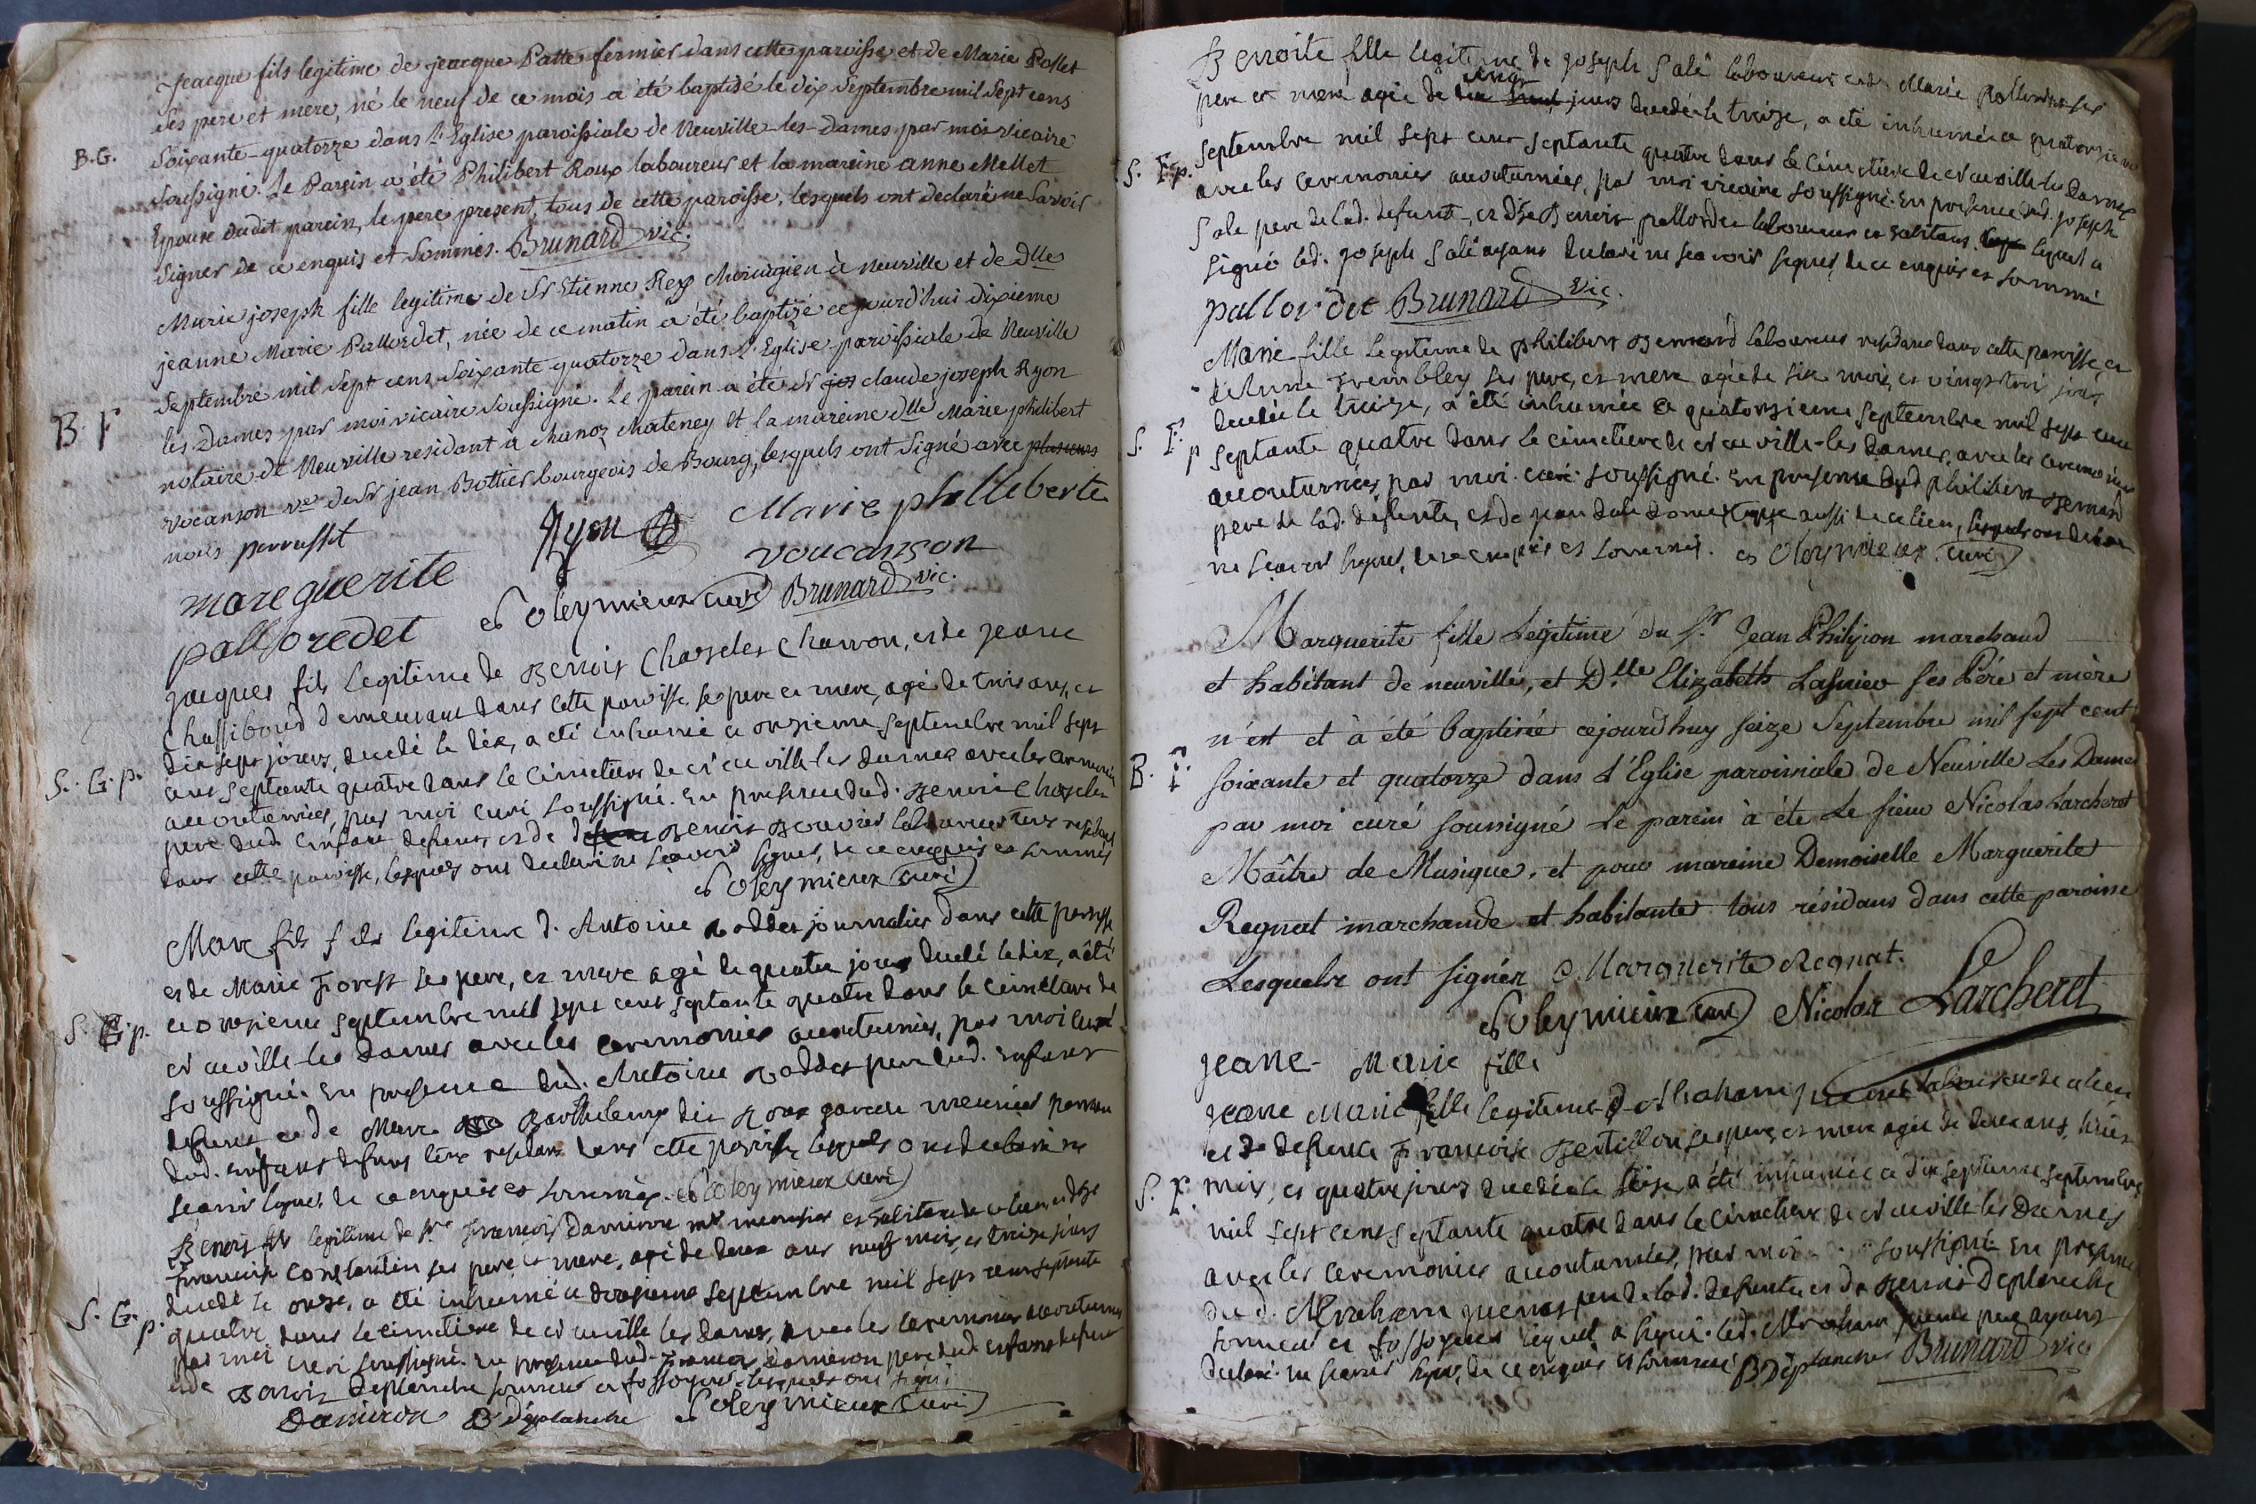 Jeacque fils legitime de jeacque Patte fermier dans cette paroisse et de Marie Pollet
ses pere et mere, né le neuf de ce mois a été baptisé le dix Septembre mil Sept cens
B.G.
Soixante-quatorze dans l'Eglise paroissiale de Neuville-les-Dames par moi vicaire
Soussigné. Le Parein a été Philibert Roux laboureur et la mareine anne Mellet
Epouse dudit parein, le pere present, tous de cette paroisse, lesquels ont declaré ne Savoir
Signer de ce enquis et Sommés. Brunard vic.
Marie joseph fille legitime de Sr Etienne Rey chirurgien à Neuville et de dlle
jeanne Marie Pallordet, née de ce matin a été baptizé ce jourd'hui dixieme
Septembre mil Sept cens Soixante quatorze dans l'Eglise paroissiale de Neuville
B. F
les Dames par moi vicaire Soussigné. Le parein a été Sr jos claude joseph Ryon
notaire de Neuville residant à chanoz chateney et la mareine dlle Marie philibert
vocanson ve de Sr jean Bottier bourgeois de Bourg, lesquels ont Signé avec plusieurs
nous perrusset
Ryon Marie philleberte
voucanson
mareguerite
palloredet
Coleymieux curé Brunard vic.
jacques fils legitime de Benoit Chaseles Charron, et de jeane
Chassiboud demeurant dans cette paroisse ses pere et mere, agé de trois ans, et
dix sept jours, decedé le dix, a eté inhumé ce onzieme septembre mil sept
S. G. p.
cens septante quatre dans le cimetiere de Neuville les dames avec les ceremonies
accoutumées, par moi curé soussigné. En presence dud. Benoit Chaseles
pere dud. enfant defunt et de Benoit Bouvier laboureur tous residens
dans cette paroisse, lesquels ont declaré ne sçavoir signer, de ce enquis et sommés
Coleymieux curé
Marc fils fils legitime d. Antoine Roddet journalier dans cette paroisse
et de Marie Forest ses pere, et mere agé de quatre jours decedé le dix, a été
ce onzieme septembre mil sept cent septante quatre dans le cimetiere de
S. G. p.
Neuville les Dames avec les ceremonies accoutumées, par moi curé
soussigné. En presence dud. Antoine Roddet pere dud. enfant
defunt et de Marc Barthelemy dit Roux garcon meunier parrain
dud. enfant defunt tous residens dans cette paroisse lesquels ont declaré ne
sçavoir signer de ce enquis et sommés. Coleymieux curé
Benoit fils legitime de Sr francois Damiron et habitant de ce lieu et de
francoise Constantin ses pere et mere, agé de deux ans neuf mois et treize jours
decedé le onze, a eté inhumé ce douzieme septembre mil sept cens septante
S. G. p.
quatre dans le cimetiere de Neuville les dames, avec les ceremonies accoutumées
par moi curé soussigné. En presence dud. francois Damiron pere dud. enfant defunt
et de Benoit Deplanche sonneur et fossoyeur lesquels ont signé
Damiron B Deplanche Coleymieux curé
Benoite fille legitime de joseph Salé laboureur et de Marie Pallordet ses
pere et mere agée de cinq jours decedée le treize, a eté inhumée ce quatorzieme
septembre mil sept cens septante quatre dans le cimetiere de Neuville les Dames
S. F. p.
avec les ceremonies accoutumées, par moi vicaire soussigné. En presence dud. joseph
Salé pere de lad. defunte, et de Benoit pallordet laboureur et habitant lequel a
signé led. joseph Salé ayant declaré ne sçavoir signer de ce enquis et sommé
pallordet Brunard vic.
Marie fille legitime de philibert Bernard laboureur residant dans cette paroisse, et
de Anne Trembley ses pere, et mere agée de six mois et vingt trois jours
decedée le treize, a été inhumée ce quatorzieme septembre mil sept cens
S. F. p
septante quatre dans le cimetiere de Neuville-les Dames, avec les ceremonies
accoutumées, par moi curé soussigné. En presence dud philibert Bernard
pere de lad. defunte, et de aussi de ce lieu, lesquels ont declaré
ne sçavoir signer, de ce enquis et sommés. Coleymieux curé
Marguerite fille Legitime du Sr. Jean Philipon marchand
et habitant de neuville, et Dlle Elizabeth Lasnier ses Péré et mère
n'est et à été baptisée cejourd'huy seize Septembre mil sept cent
B. F.
soixante et quatorze dans L'Eglise paroissiale de Neuville Les Dames
par moi curé soussigné Le parein à éte Le sieur Nicolas Larcheret
Maître de Musique, et pour mareine Demoiselle Marguerite
Regnat marchande et habitante tous résidans dans cette paroisse
Lesquels ont signés Marguerite Regnat.
Coleymieux curé Nicolas Larcheret
jeane-Marie fille
jeane Marie fille legitime d. Abraham laboureur de ce lieu
et de defunte Francoise Bertillon ses pere, et mere agée de deux ans, huit
S. F.
mois, et quatre jours decedée le seize, a été inhumée ce dix septieme septembre
mil sept cens septante quatre dans le cimetiere de Neuville les Dames
avec les ceremonies accoutumées, par moi soussigné En presence
dud. Abraham pere de lad. defunte, et de Benoit Deplanche
sonneur et fossoyeur lequel a signé led. Abraham pere ayant
declaré ne sçavoir signer, de ce enquis et sommé B Deplanche Brunard vic